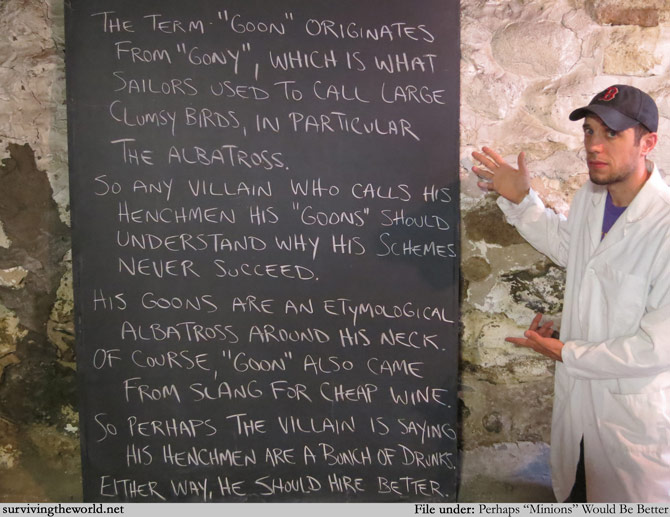 THE TERM "GOON" ORIGINATES
FROM "GONY", WHICH IS WHAT
SAILORS USED TO CALL LARGE
CLUMSY BIRDS, IN PARTICULAR
THE ALBATROSS.
SO ANY VILLAIN WHO CALLS HIS
HENCHMEN HIS "GOONS" SHOULD
UNDERSTAND WHY HIS SCHEMES
NEVER SUCCEED.
HIS GOONS ARE AN ETYMOLOGICAL
ALBATROSS AROUND HIS NECK.
OF COURSE, "GOON" ALSO CAME
FROM SLANG FOR CHEAP WINE.
SO PERHAPS THE VILLAIN IS SAYING
HIS HENCHMEN ARE A BUNCH OF DRUNKS.
EITHER WAY, HE SHOULD HIRE BETTER.
B
survivingtheworld.net
File under: Perhaps "Minions" Would Be Better